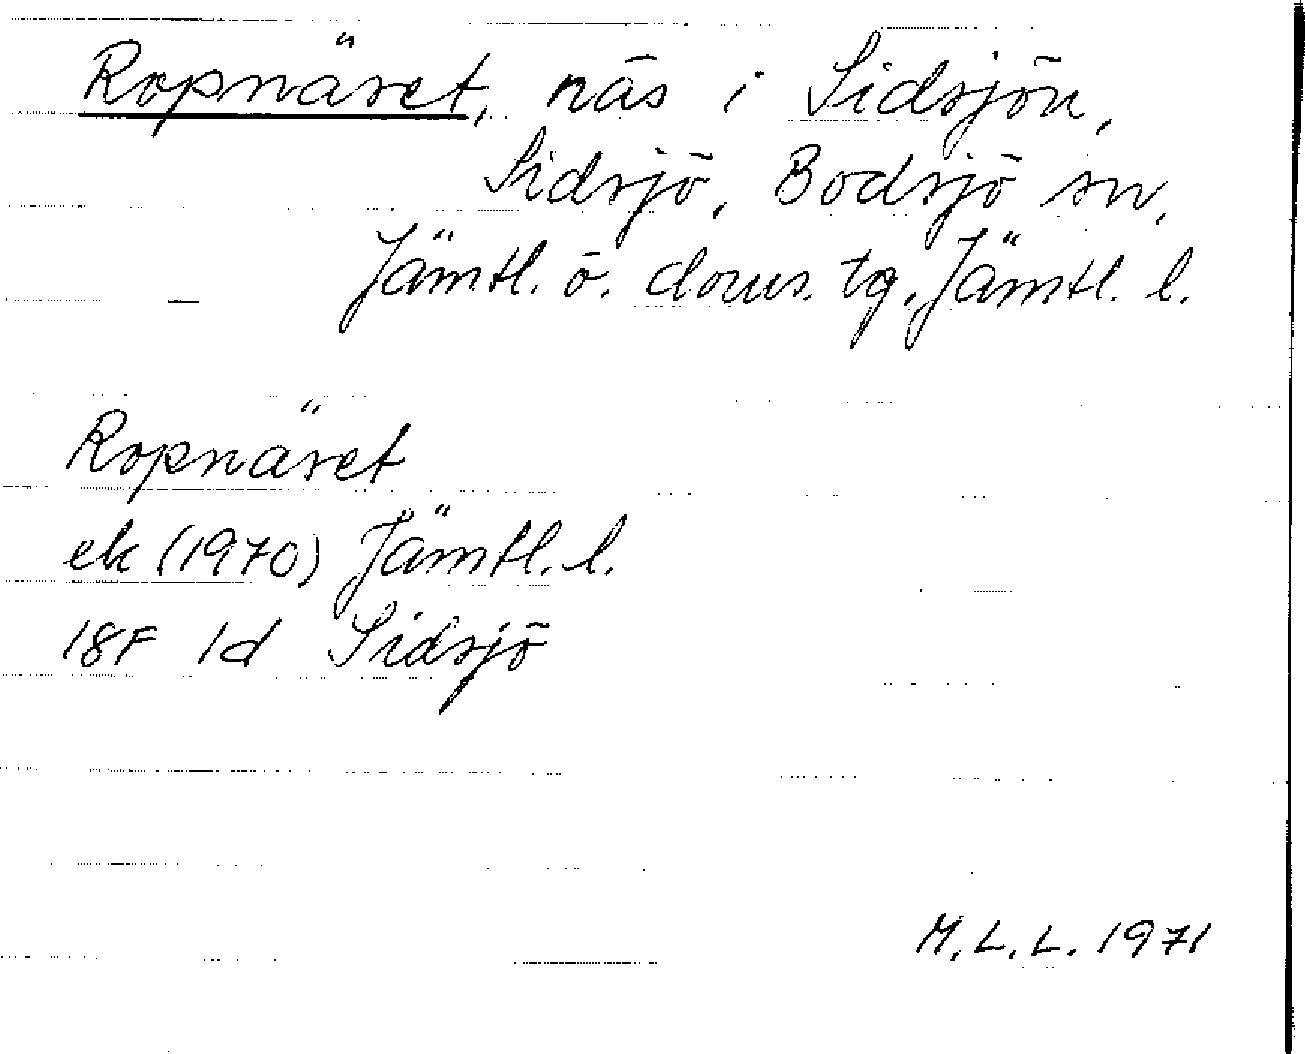 Ropnäset, näs i Sidsjön,
Sidsjö, Bodsjö sn,
Jämtl. ö. doms. tg, Jämtl. l.
Ropnäset
ek (1970) Jämtl. l.
18F 1d Sidsjö
M.L.L. 1971